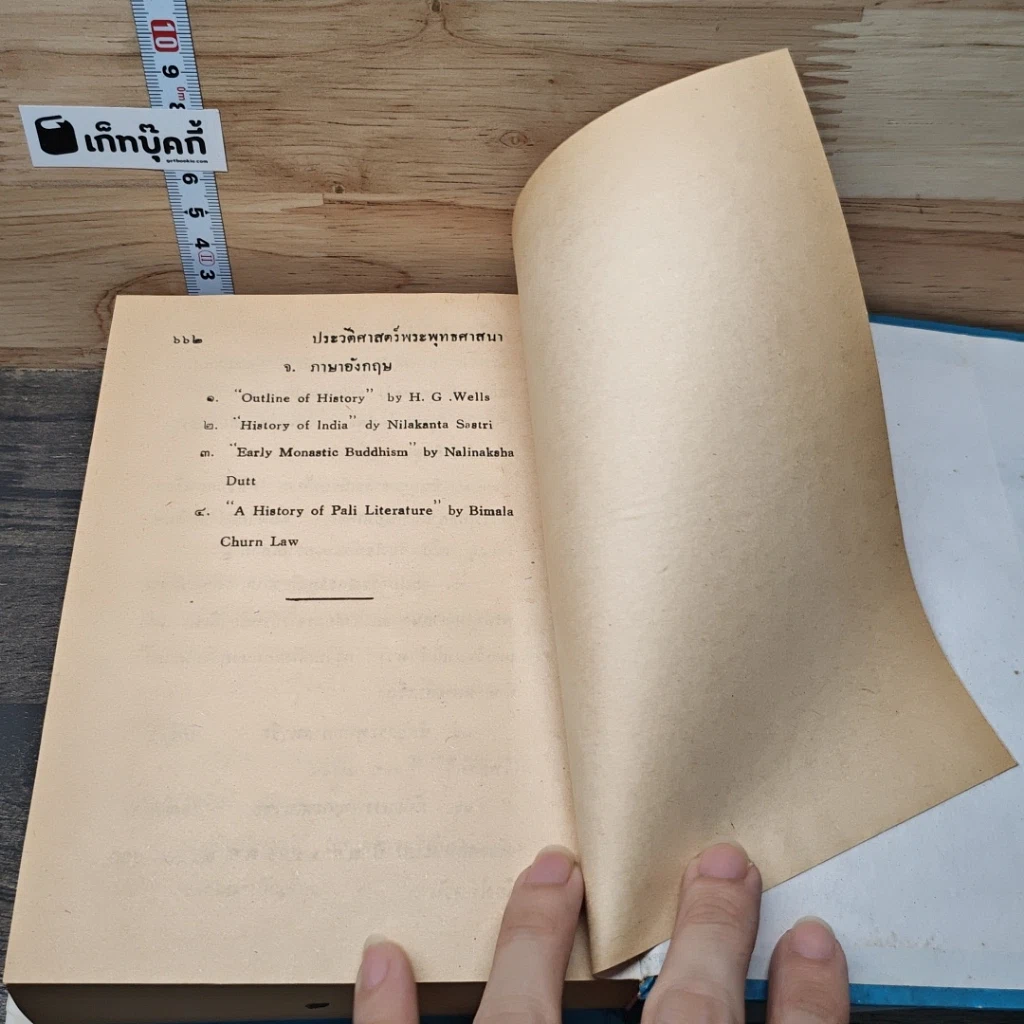 10
9
8
เก็ทบุ๊คกี้
getbookie.com
6
5
4
3
๖๖๒ ประวัติศาสตร์พระพุทธศาสนา
จ. ภาษาอังกฤษ
๑. "Outline of History" by H. G .Wells
๒. "History of India" dy Nilakanta Sastri
๓. "Early Monastic Buddhism" by Nalinaksha
Dutt
๔. "A History of Pali Literature" by Bimala
Churn Law